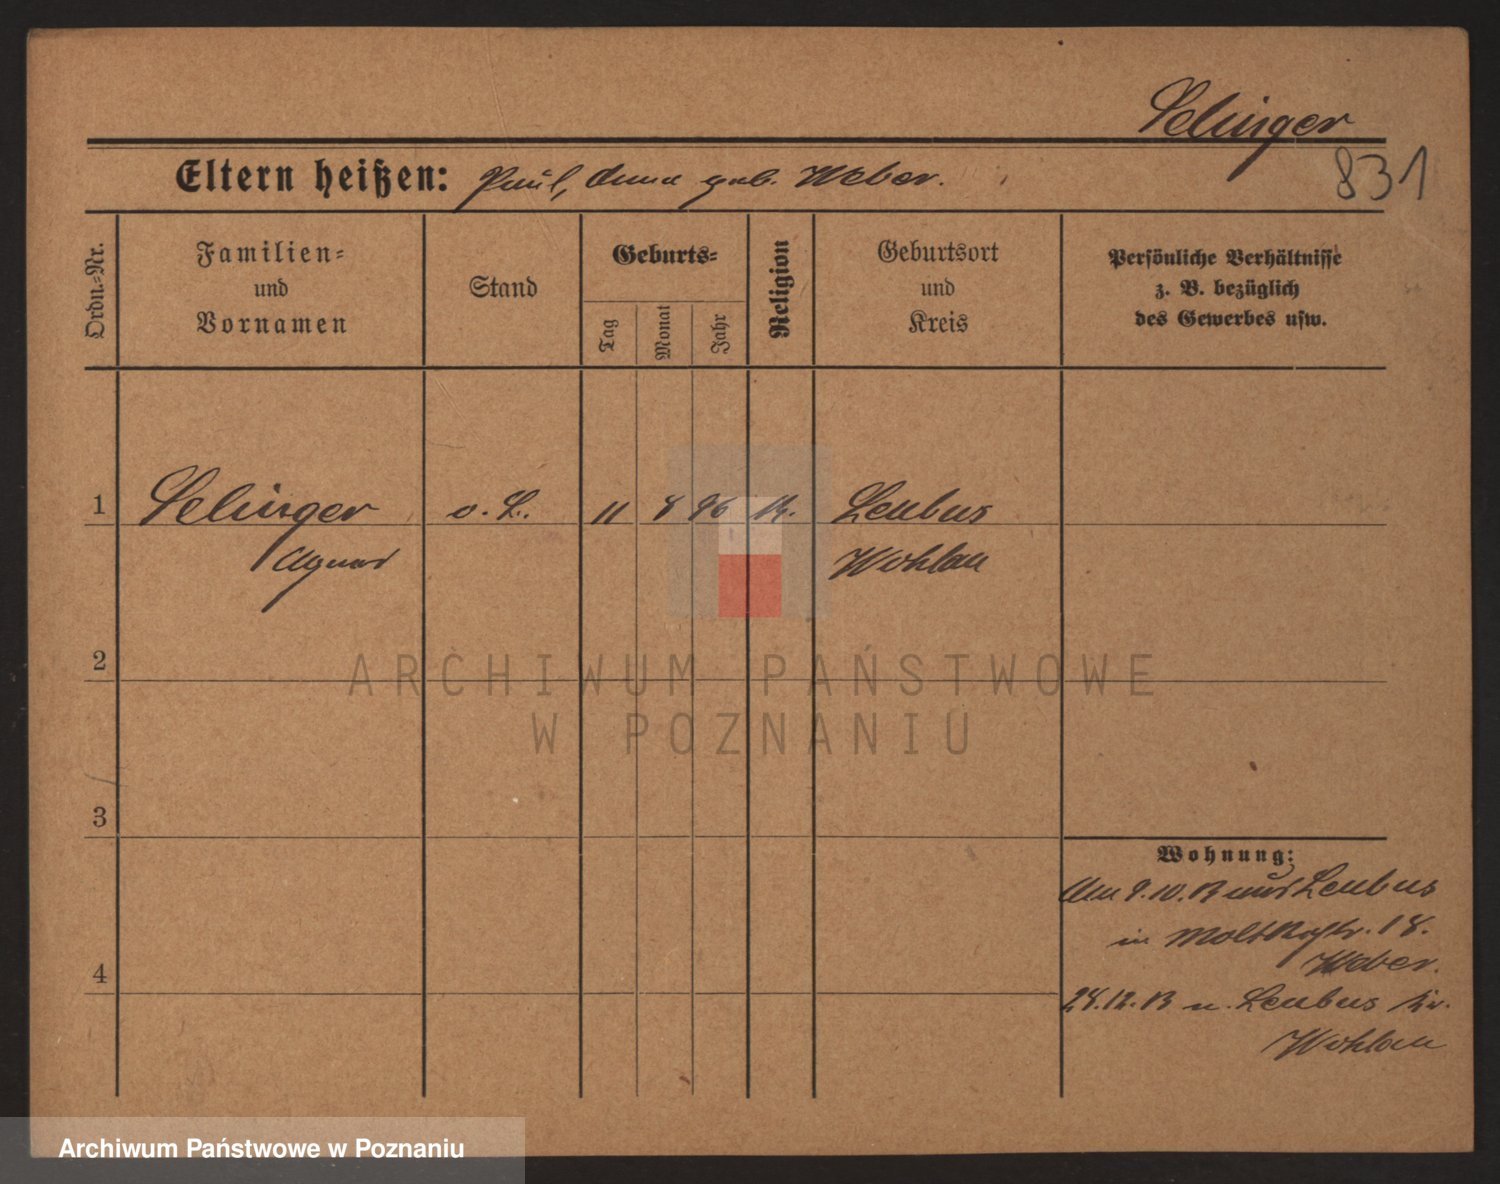 Selinger
831
Eltern heißen: Paul, Anna geb. Weber.
Ordn.-Nr.
Familien-
und
Vornamen
Stand
Geburts-
Tag
Monat
Jahr
Religion
Geburtsort
und
Kreis
Persönliche Verhältnisse
z. B. bezüglich
des Gewerbes usw.
1 Selinger o. 11 8 96 K. Leubus
Agnes Wohlau
2
ARCHIWUM PAŃSTWOWE
W POZNANIU
3
Wohnung:
Am 9.10.13 aus Leubus
in Moltkestr. 18.
Weber.
4
28.12.13 n. Leubus Kr.
Wohlau
Archiwum Państwowe w Poznaniu